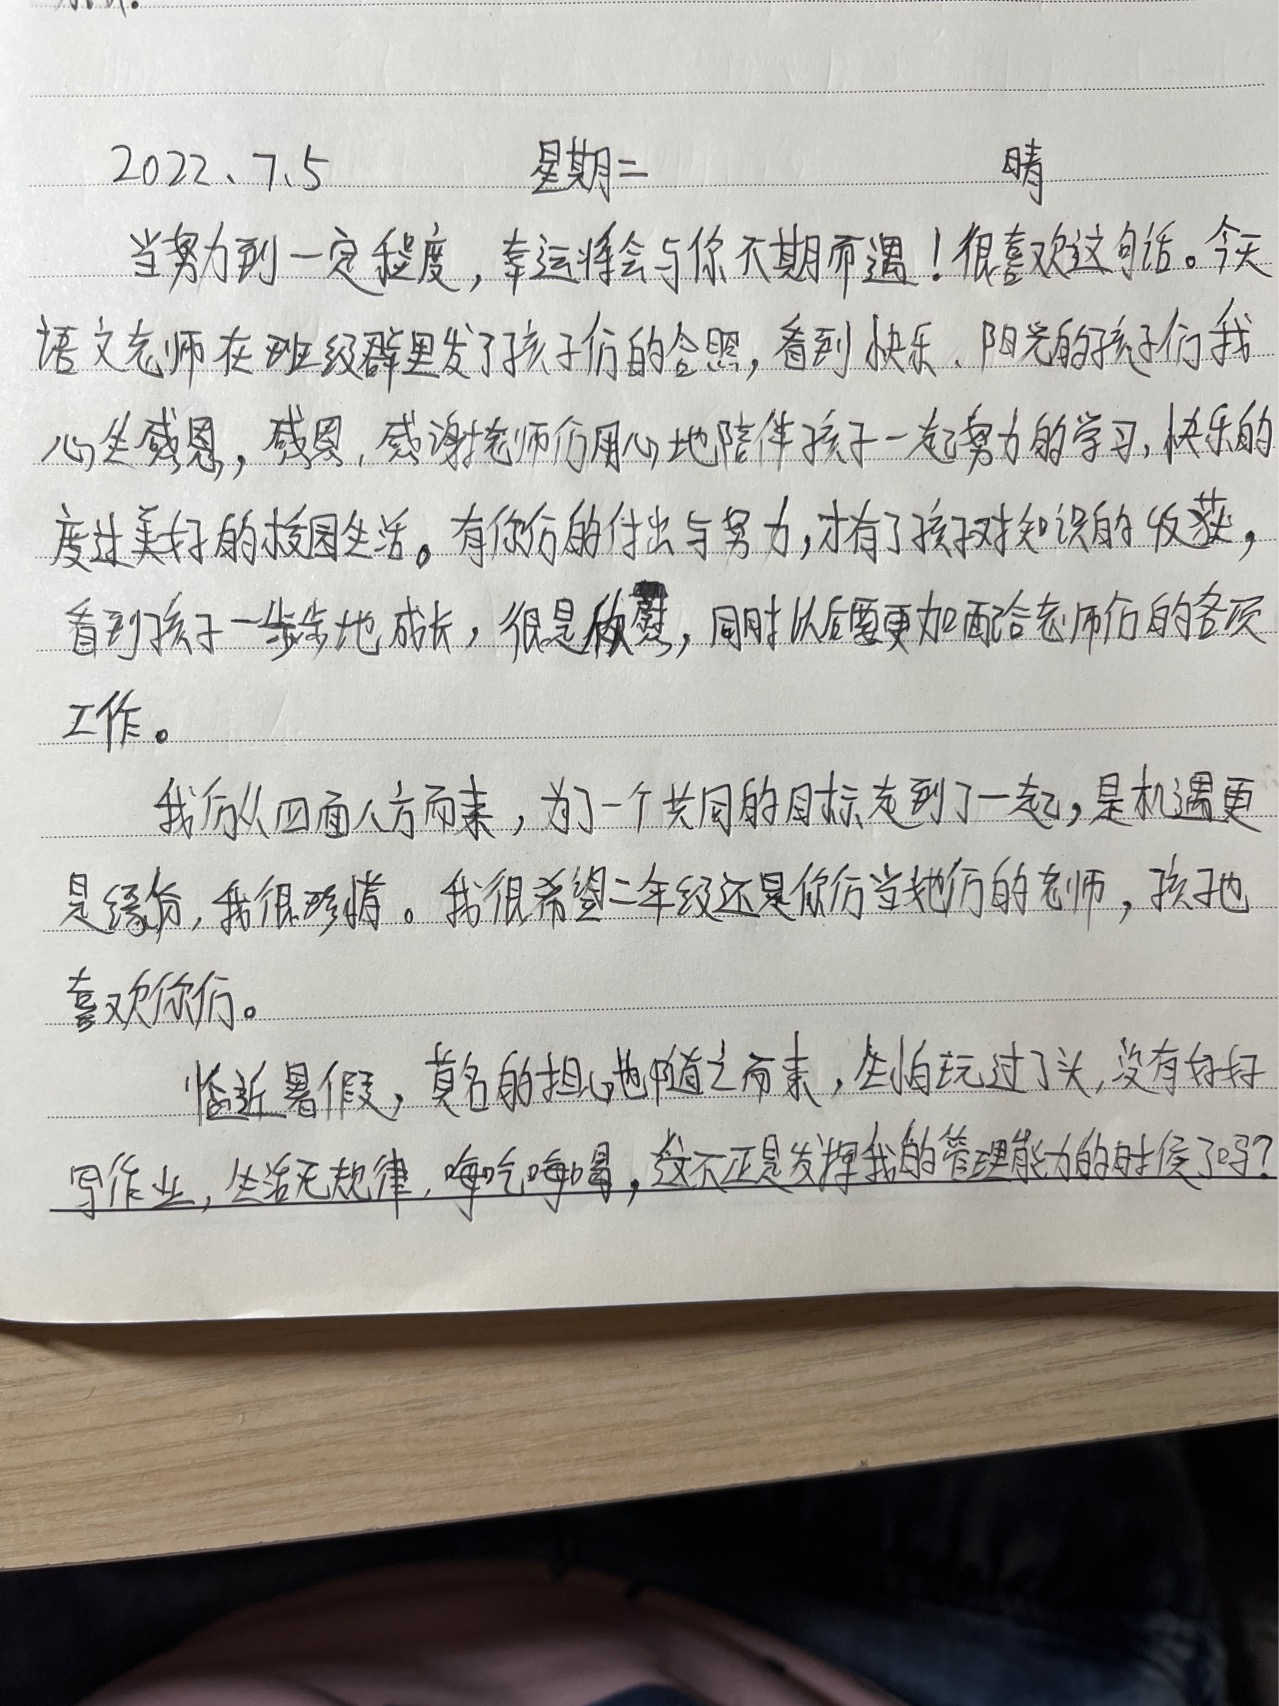 2022、7、5 星期二 晴
当努力到一定程度，幸运将会与你不期而遇！很喜欢这句话。今天
语文老师在班级群里发了孩子们的合照，看到快乐、阳光的孩子们我
心生感恩，感恩，感谢老师们用心地陪伴孩子一起努力的学习，快乐的
度过美好的校园生活。有你们的付出与努力，才有了孩子对知识的收获，
看到孩子一步步地成长，很是欣慰，同时以后要更加配合老师们的各项
工作。
我们从四面八方而来，为了一个共同的目标走到了一起，是机遇更
是缘份，我很珍惜。我很希望二年级还是你们当她们的老师，孩子也
喜欢你们。
临近暑假，莫名的担心也随之而来，生怕玩过了头，没有好好
写作业，生活无规律，海吃海喝，这不正是发挥我的管理能力的时候了吗？